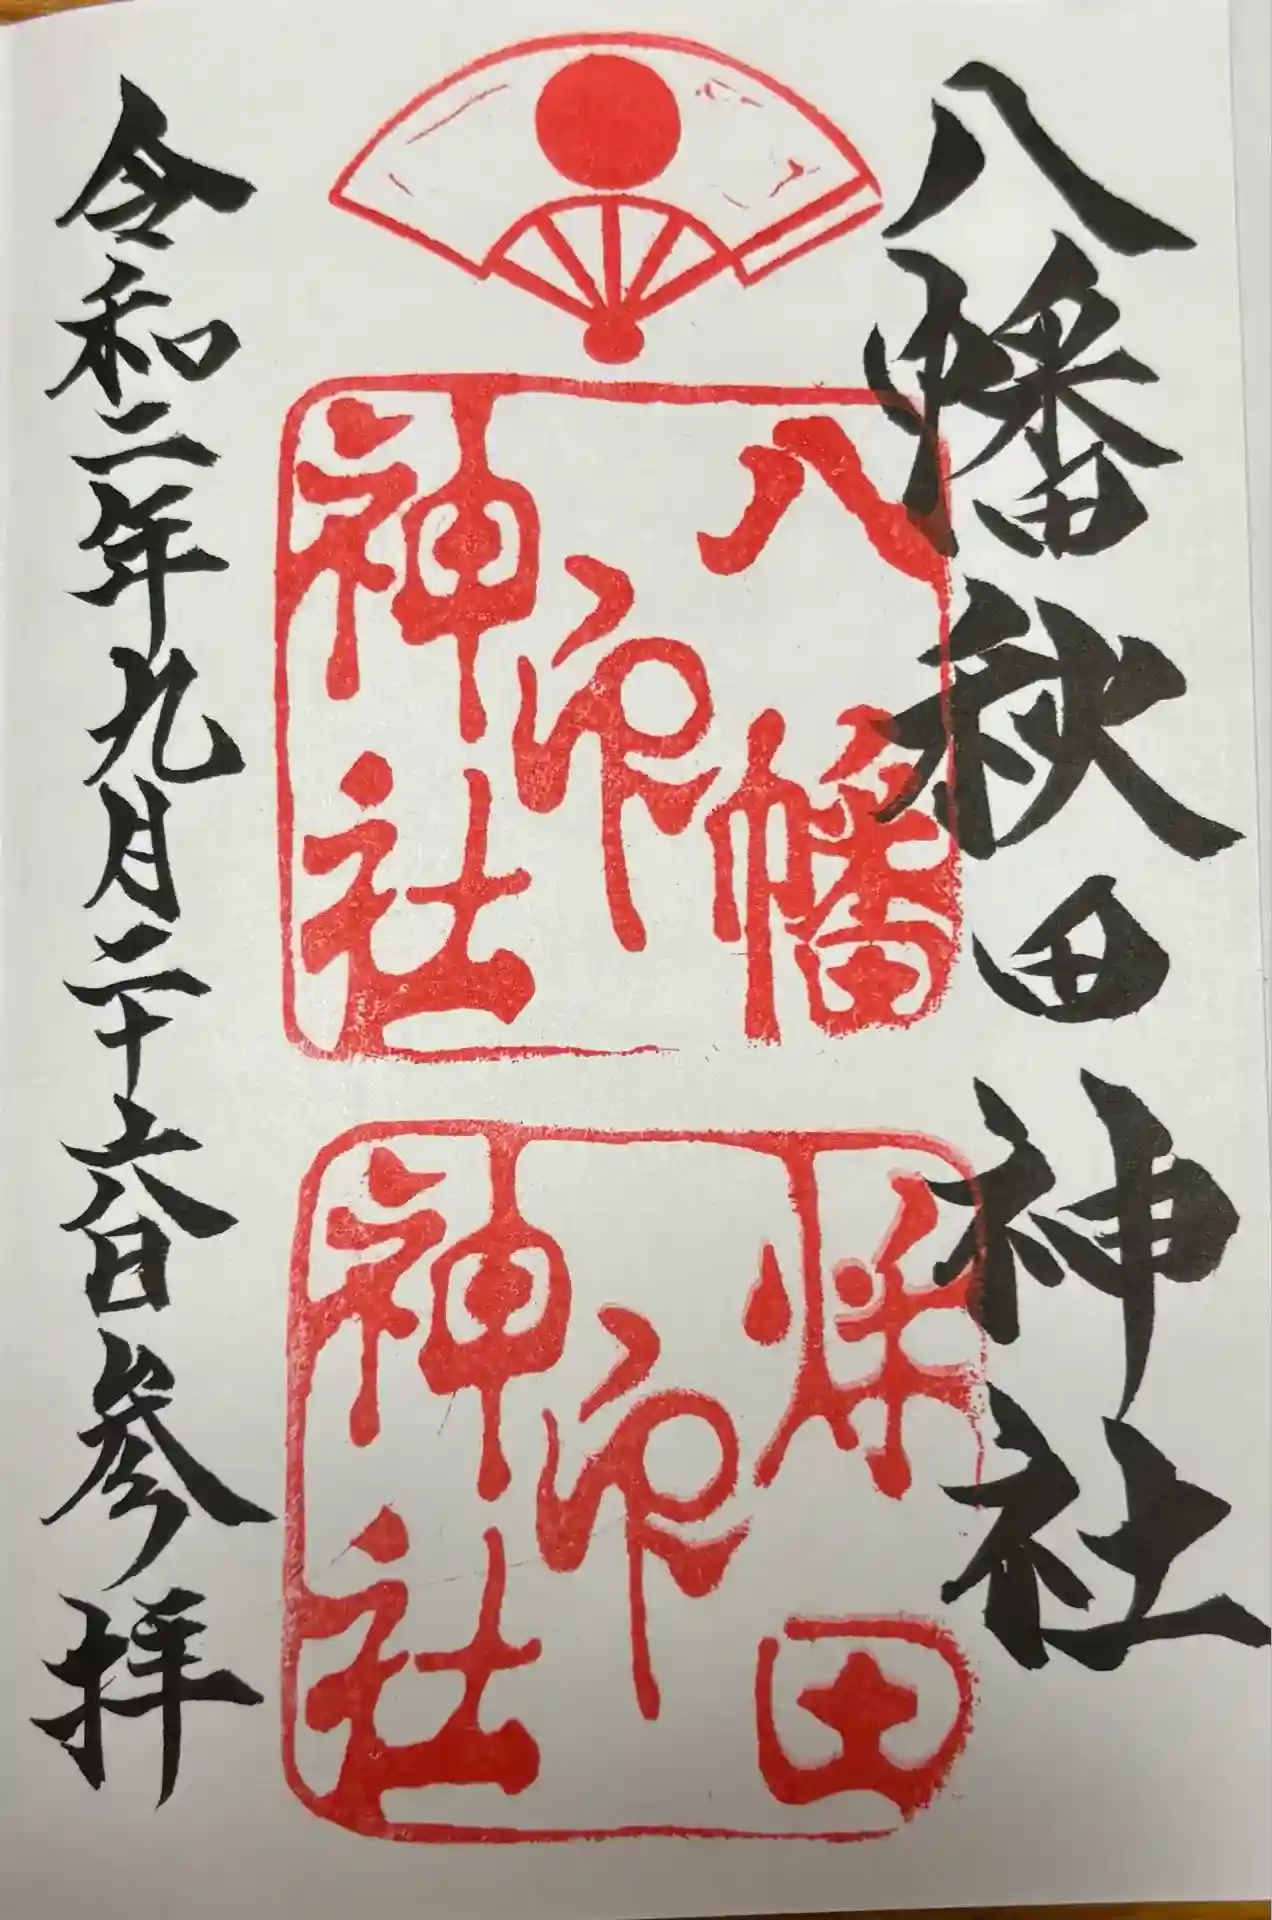 八幡秋田神社
八幡
神印
神社
秌田
神印
神社
令和二年九月二十六日参拝